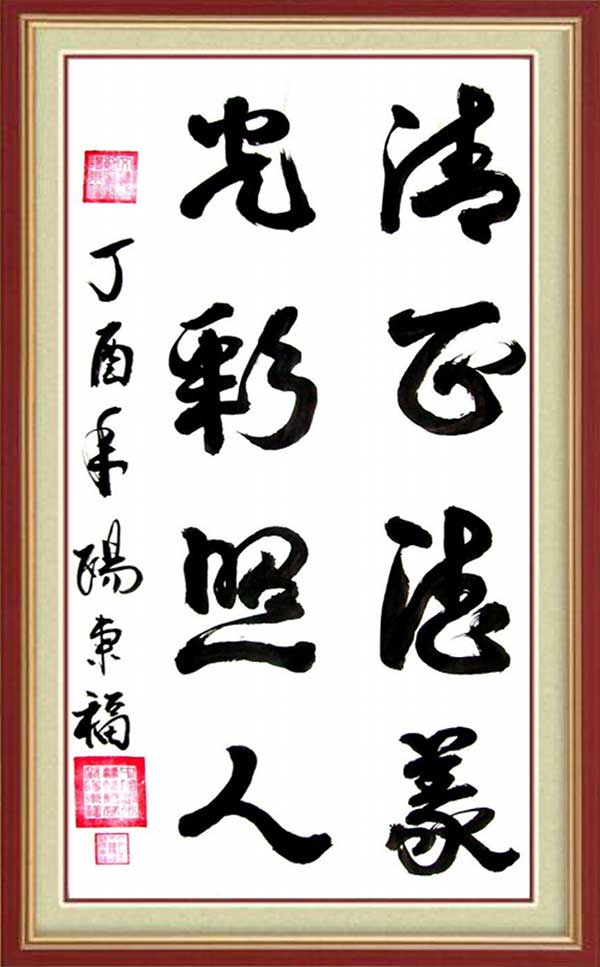 清正德義
光彩照人
丁酉年陽東福